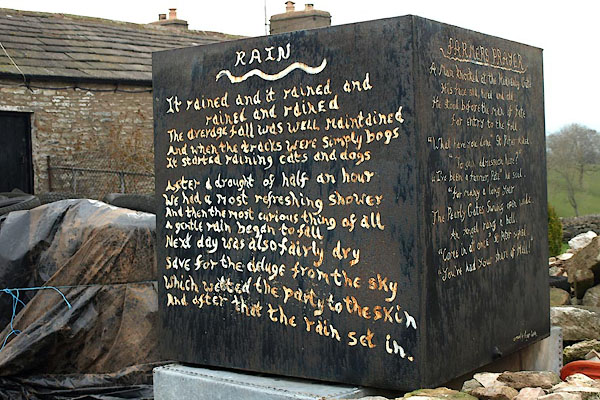 RAIN
It rained and it rained and
rained and rained
The average fall was well maintained
And when the tracks were simply bogs
It started raining cats and dogs
After a drought of half an hour
We had a most refreshing shower
And then the most curious thing of all
A gentle rain began to fall
Next day was also fairly dry
Save for the deluge from the sky
Which wetted the party to the skin
And after that the rain set in.
FARMERS PRAYER
A Man knocked at the Heavenly Gate
His face and old
He stood before the man of Fate
For entry to the fold
"What have you done" St Peter asked
"To gain admission here?"
"I've been a farmer, Peter" he said
"For many a long year
The Pearly Gates swung open wide
As Peter rang a bell
"Come in" St Peter said,
"You've had your share of Hell!"